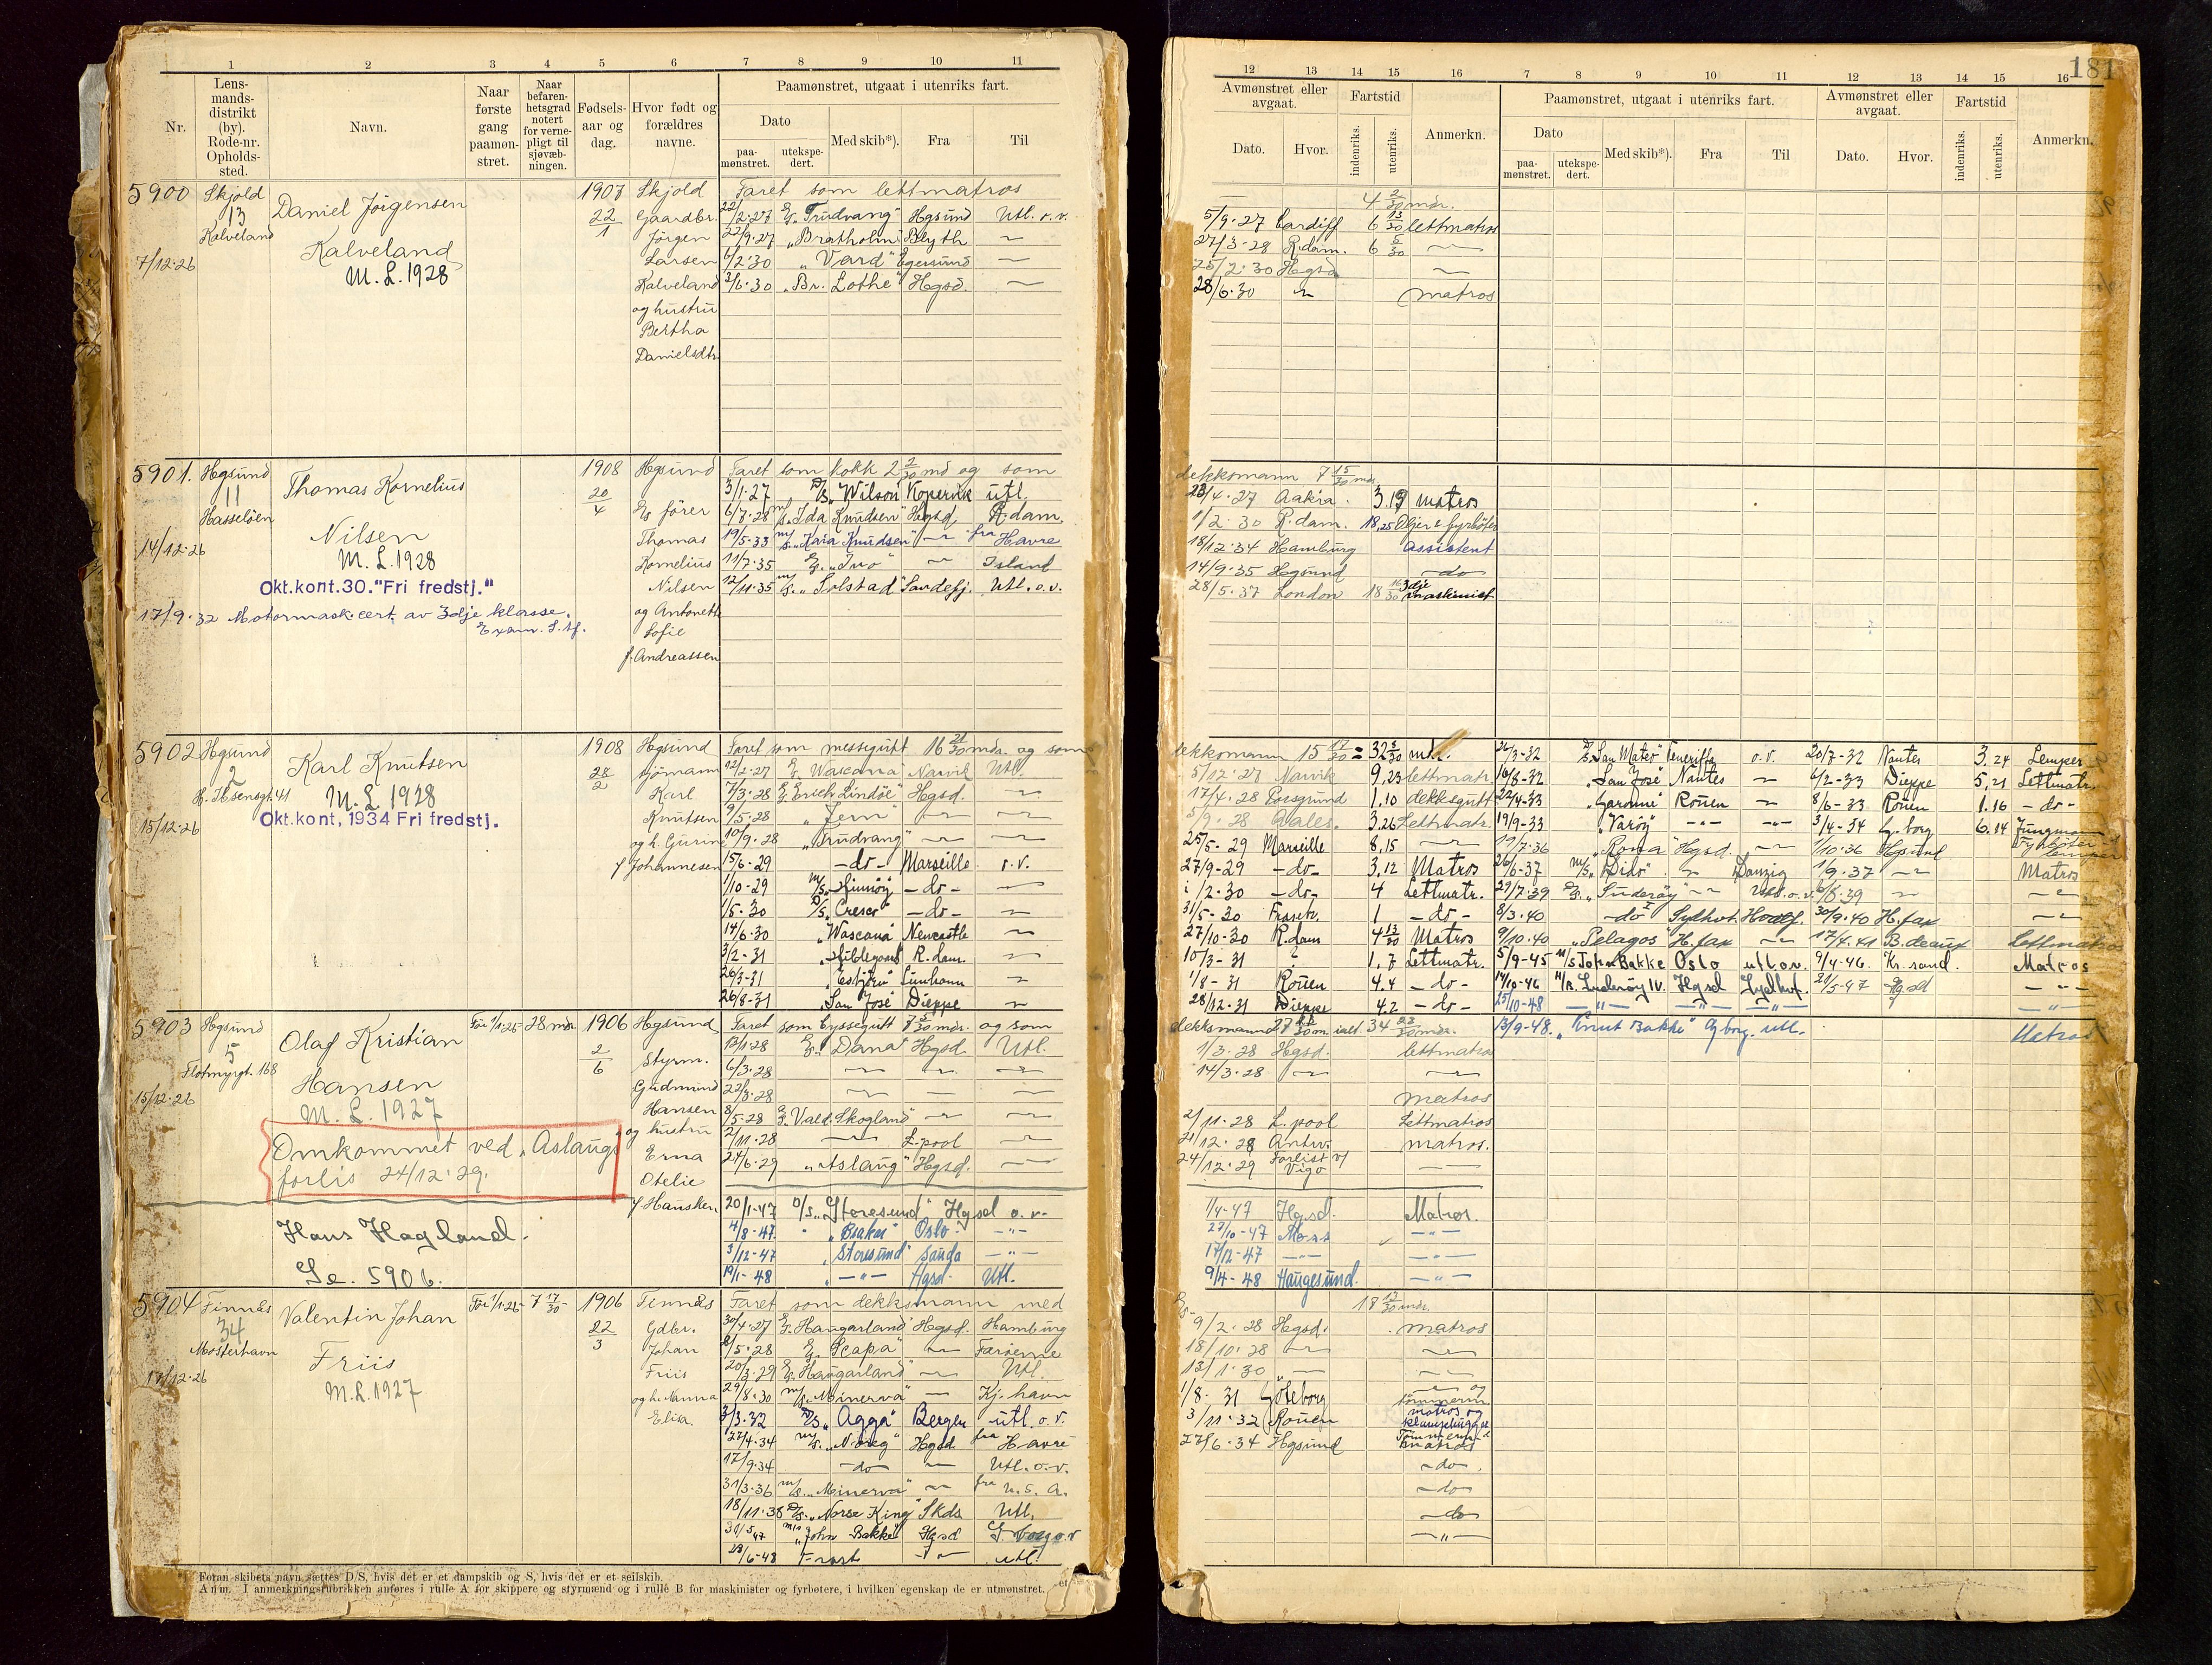 181
1 2 3 4 5 6 7 8 9 10 11
Nr.
Lens-
mands-
distrikt
(by).
Rode-nr.
Opholds-
sted.
Navn.
Naar
første
gang
paamøn-
stret.
Naar
befaren-
hetsgrad
notert
for verne-
pligt til
sjøvæb-
ningen.
Fødsels-
aar og
dag.
Hvor født og
forældres
navne.
Paamønstret, utgaat i utenriks fart.
Dato
paa-
mønstret.
utekspe-
dert.
Med skib*).
Fra
Til
5900 Skjold Daniel Jørgensen 1907 Skjold Faret som lettmatros
13 22/1 Gaardbr. 22/2-27 "Trudvang" Hgsund Utl. o.v.
Kalveland Kalveland Jørgen 22/9-27 "Bratholm" Blyth
7/12-26 M.L. 1928 Larsen 6/2-30 "Vard" Egersund
Kalveland 2/6-30 "Br. Lothe" Hgsd.
og hustru
Bertha
Danielsdtr.
5901. Hgsund Thomas Kornelius 1908 Hgsund Faret som kokk 2 2/30 md og som
11 20/4 fører 3/1-27 D/S "Wilson" Kopervik utl.
Hasseløen Nilsen Thomas 6/7-28 m/s "Ida Knudsen" Hgsd. R.dam.
14/12-26 M.L. 1928 Kornelius 19/5-33 m/s "Kaia Knudsen" fra Havre
Okt.kont.30."Fri fredstj." 11/7-35 "Ino" Island
Nilsen 12/11-35 m/s "Solstad" Sandefj. Utl. o.v.
17/9-32 Motormask.cert. av 3dje klasse. og Antonette
Sofie
f. Andreassen
5902 Hgsund Karl Knutsen 1908 Hgsund Faret som messegutt 16 21/30 mdr. og som
2 28/2 sjømann 12/2-27 "Wascana" Narvik Utl.
H. Ibsensgt. 41 M.L. 1928 Karl 7/3-28 "Erich Lindøe" Hgsd.
15/12-26 Okt.kont, 1934 Fri fredstj. Knutsen 9/5-28 "Jern"
og h. Gurine 10/9-28 "Trudvang"
f. Johannesen 15/6-29 -do- Marseille o.v.
1/10-29 m/s "Hinnøy" -do-
1/5-30 D/s "Cresco" -do-
14/6-30 "Wascana" Newcastle
3/2-31 "Hildegaard" R.dam.
26/3-31 "Esbjørn"
26/8-31 "San José" Dieppe
5903 Hgsund Olaf Kristian Før 1/1-25 28 mdr 1906 Hgsund Faret som byssegutt 7 mdr. og som
5 2/6 Styrm. 12/1-28 "Dana" Hgsd. Utl.
Flotmyrgt. 168 Hansen Gudmund 6/3-28
15/12-26 M.L. 1927 Hansen 22/3-28
Omkommet ved "Aslaugs" og hustru 8/5-28 "Vald. Skogland"
forlis 24/12-29. Erna 2/11-28 L.pool
Otelie 24/6-29 "Aslaug" Hgsd.
f. Hansken 20/1-47 D/s "Storesund" Hgsd o.v.
Hans Hagland. 4/8-47 "Brakar" Oslo -"-
Se. 5906. 3/12-47 "Storesund" Sauda -"-
19/1-48 -"- Hgsd. Utl.
5904 Finnås Valentin Johan Før 1/1-25 7 17/30 1906 Finnås Faret som dekksmann med
34 22/3 Gdbr. 30/4-27 "Haugarland" Hgsd. Hamburg
Mosterhavn Johan 2/5-28 "Scapa" Færøerne
17/12-26 Friis Friis 20/3-29 "Haugarland" Utl.
M.L. 1927 og h. Nanna 29/8-30 m/s "Minerva" Kj.havn
Elisa. 3/3-32 D/S "Agga" Bergen utl. o.v.
27/4-34 m/s "Noreg" Hgsd fra Havre
17/9-34 -do- Utl. o.v.
31/3-36 m/s "Minerva" fra U.S.A.
18/11-38 D/s "Norse King" Skds Utl.
31/5 47 m/s "John Bakke" Hgsd G.borg o.v
28/6-48 Frost utl.
Foran skibets navn sættes D/S, hvis det er et dampskib og S, hvis det er et seilskib.
Anm. I anmerkningsrubrikken anføres i rulle A for skippere og styrmænd og i rulle B for maskinister og fyrbøtere, i hvilken egenskap de er utmønstret.
12 13 14 15 16 7 8 9 10 11 12 13 14 15 16
Avmønstret eller
avgaat.
Fartstid
Dato.
Hvor.
indenriks.
utenriks.
Anmerkn.
Paamønstret, utgaat i utenriks fart.
Dato
paa-
mønstret.
utekspe-
dert.
Med skib*).
Fra
Til
Avmønstret eller
avgaat.
Dato.
Hvor.
Fartstid
indenriks.
utenriks.
Anmerkn.
4 2/30 mdr.
5/9-27 Cardiff 6 13/30 lettmatros
27/3-28 R.dam. 6 5/30
25/2-30 Hgsd
28/6-30 matros
dekksmann 7 15/30 mdr
23/4-27 Aakra. 3.19 matros
1/2-30 R.dam. 18,25 Oljer & fyrbøter
18/12-34 Hamburg assistent
14/9-35 Hgsund -do-
28/5-37 London 18 16/30 3dje maskinist
dekksmann 15 17/30 = 32 8/30 md. 26/3-32 D/S "San Mateo" Teneriffa o.v. 20/7-32 Nantes 3,24 Lemper
5/12-27 Narvik 9,23 lettmatr. 16/8-32 "San José" Nantes 6/2-33 Dieppe 5,21 Lettmatr.
17/4-28 Porsgrund 1,10 dekksgutt 22/4-33 "Garonne" Rouen 8/6-33 Rouen 1.16 -do-
5/9-28 Aales. 3,26 Lettmatr. 19/9-33 "Varøy" 3/4-34 G.borg 6.14 Jungmann
25/5-29 Marseille 8,15 "Rona" Hgsd. 1/10-36 Hgsund Fyrbøter
27/9-29 -do- 3,12 Matros 26/6-37 m/s "Dido" Danzig 1/9-37 Matros
1/2-30 -do- 4 Lettmatr. 29/7-39 "Suderøy" Utl. o.v.
31/5-30 1 -do- 8/3-40 -do- I Sydhvt. 30/9-40 H.fax
27/10-30 R.dam 4 13/30 Matros 9/10-40 "Pelagos" H.fax 17/4-41 B.deaux Lettmatros
10/3-31 ? 1,7 Lettmatr. 5/9-45 m/s John Bakke Oslo utl o.v. 9/4-46. Kr.sand. Matros
1/8-31 Rouen 4.4 -do- 14/10-46 Suderøy IV. Hgsd Sydhvf. 21/5-47 Hgsd -"-
28/12-31 Dieppe 4.2 -do- 25/10-48 -"- -"- -"- -"-
dekksmann ialt. 34 mdr. 13/9-48. "Knut Bakke" Gborg. utl. Matros
1/3-28 Hgsd. lettmatros
14/3-28
matros
2/11-28 L.pool Lettmatros
21/12-28 Antw. matros.
24/12-29 Forlist v/ Vigo
1/4-47 Hgsd. Matros.
27/10-47 Moss -"-
17/12-47 -"- -"-
9/4-48 Haugesund. -"-
18 12/30 mdr.
9/2-28 Hgsd. matros
18/10-28
13/1-30
1/8-31 Göteborg og tømmerm.
3/11-32 Rouen matros og
27/6-34 Hgsund Tømmerm. matros
-do-
-do
-do
-"-